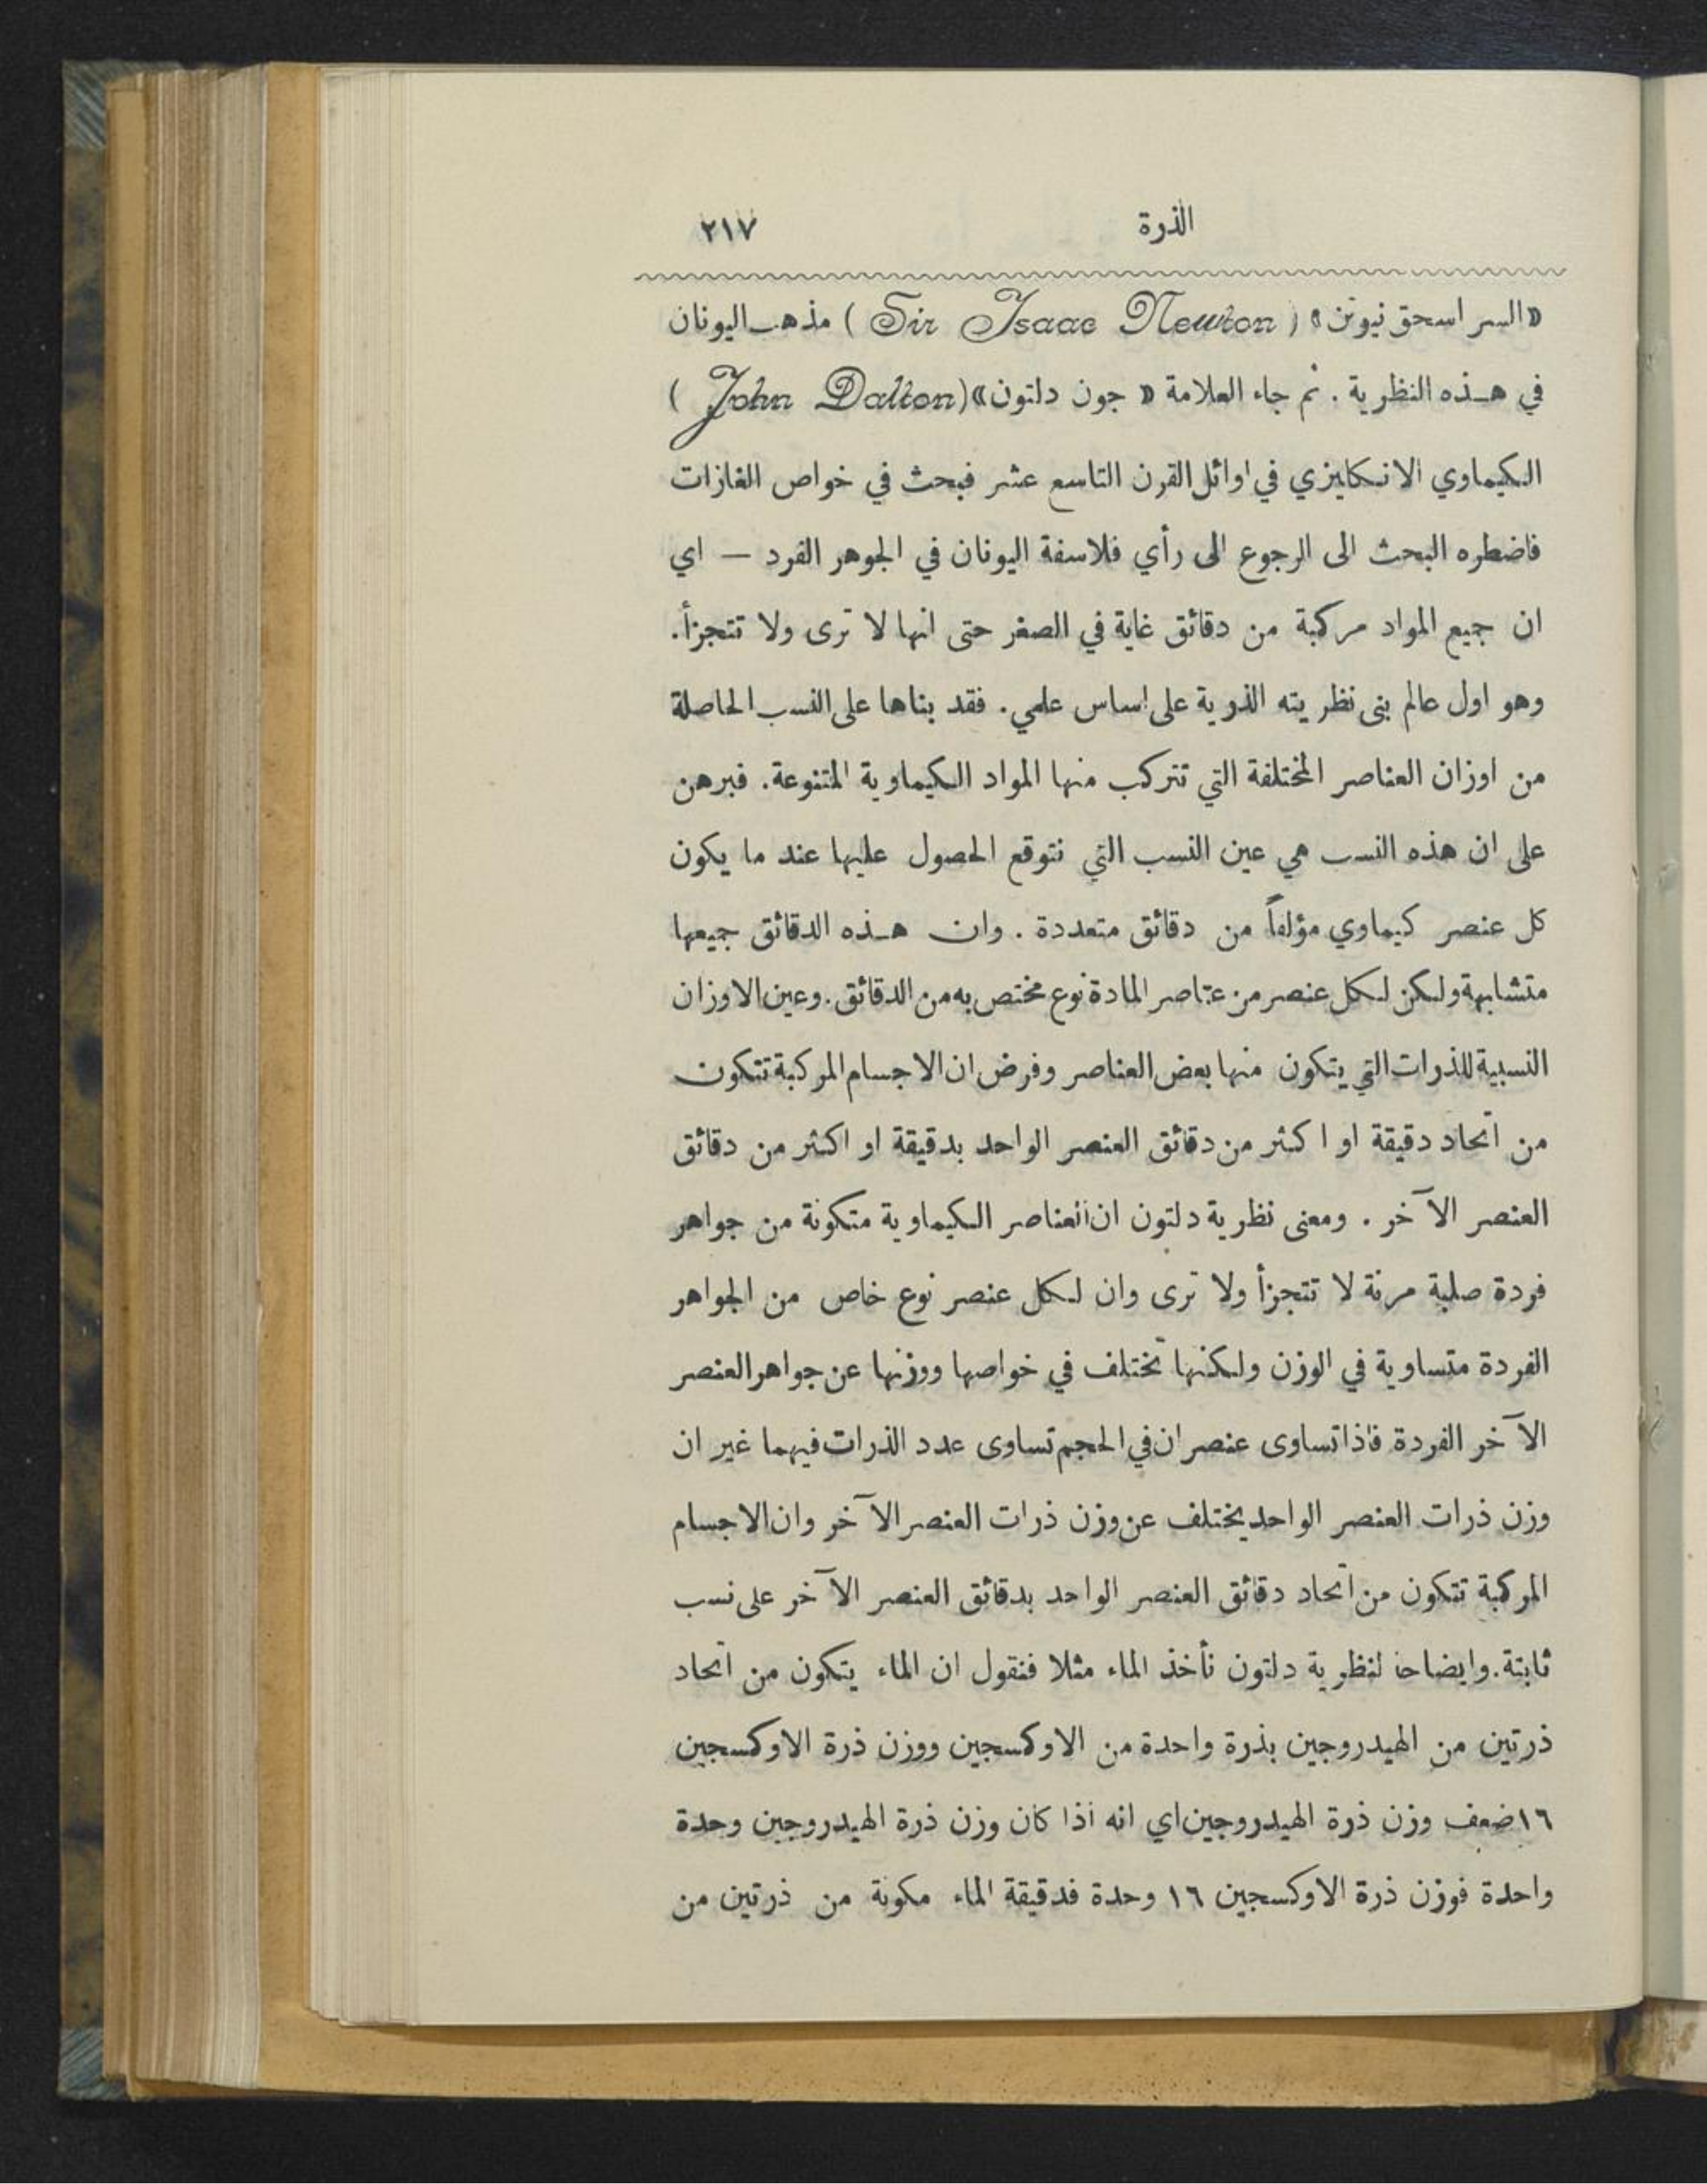 الذرة ٢١٧
«السر اسحق نيوتن» (Sir Isaac Newton) مذهب اليونان
في هذه النظرية . ثم جاء العلامة « جون دلتون» (John Dalton)
الكيماوي الانكليزي في اوائل القرن التاسع عشر فبحث في خواص الغازات
فاضطره البحث الى الرجوع الى رأي فلاسفة اليونان في الجوهر الفرد — اي
ان جميع المواد مركبة من دقائق غاية في الصغر حتى انها لا ترى ولا تتجزأ.
وهو اول عالم بنى نظريته الذرية على اساس علمي. فقد بناها على النسب الحاصلة
من اوزان العناصر المختلفة التي تتركب منها المواد الكيماوية المتنوعة. فبرهن
على ان هذه النسب هي عين النسب التي نتوقع الحصول عليها عند ما يكون
كل عنصر كيماوي مؤلفاً من دقائق متعددة . وان هذه الدقائق جميعها
متشابهة ولكن لكل عنصر من عناصر المادة نوع مختص به من الدقائق. وعين الاوزان
النسبية للذرات التي يتكون منها بعض العناصر وفرض ان الاجسام المركبة تتكون
من اتحاد دقيقة او اكثر من دقائق العنصر الواحد بدقيقة او اكثر من دقائق
العنصر الآخر . ومعنى نظرية دلتون ان العناصر الكيماوية متكونة من جواهر
فردة صلبة مرنة لا تتجزأ ولا ترى وان لكل عنصر نوع خاص من الجواهر
الفردة متساوية في الوزن ولكنها تختلف في خواصها ووزنها عن جواهر العنصر
الآخر الفردة فاذا تساوى عنصران في الحجم تساوى عدد الذرات فيهما غير ان
وزن ذرات العنصر الواحد يختلف عن وزن ذرات العنصر الآخر وان الاجسام
المركبة تتكون من اتحاد دقائق العنصر الواحد بدقائق العنصر الآخر على نسب
ثابتة. وايضاحا لنظرية دلتون نأخذ الماء مثلا فنقول ان الماء يتكون من اتحاد
ذرتين من الهيدروجين بذرة واحدة من الاوكسجين ووزن ذرة الاوكسجين
١٦ ضعف وزن ذرة الهيدروجين اي انه اذا كان وزن ذرة الهيدروجين وحدة
واحدة فوزن ذرة الاوكسجين ١٦ وحدة فدقيقة الماء مكونة من ذرتين من